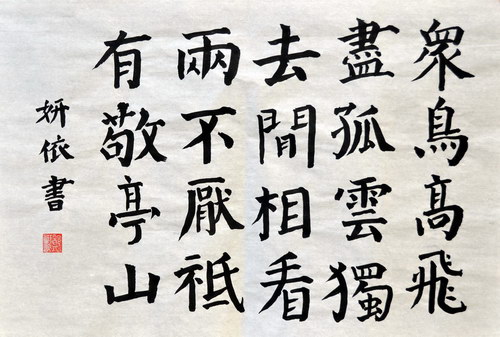 眾鳥高飛
盡孤雲獨
去閒相看
兩不厭祗
有敬亭山
妍依書